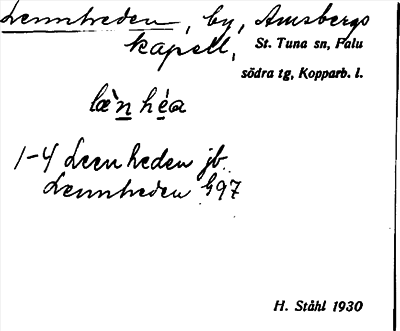 Lennheden, by, Amsbergs
kapell, St. Tuna sn, Falu
södra tg, Kopparb. l.
læ̀n héa
1-4 Leenheden jb
Lennheden G97
H. Ståhl 1930